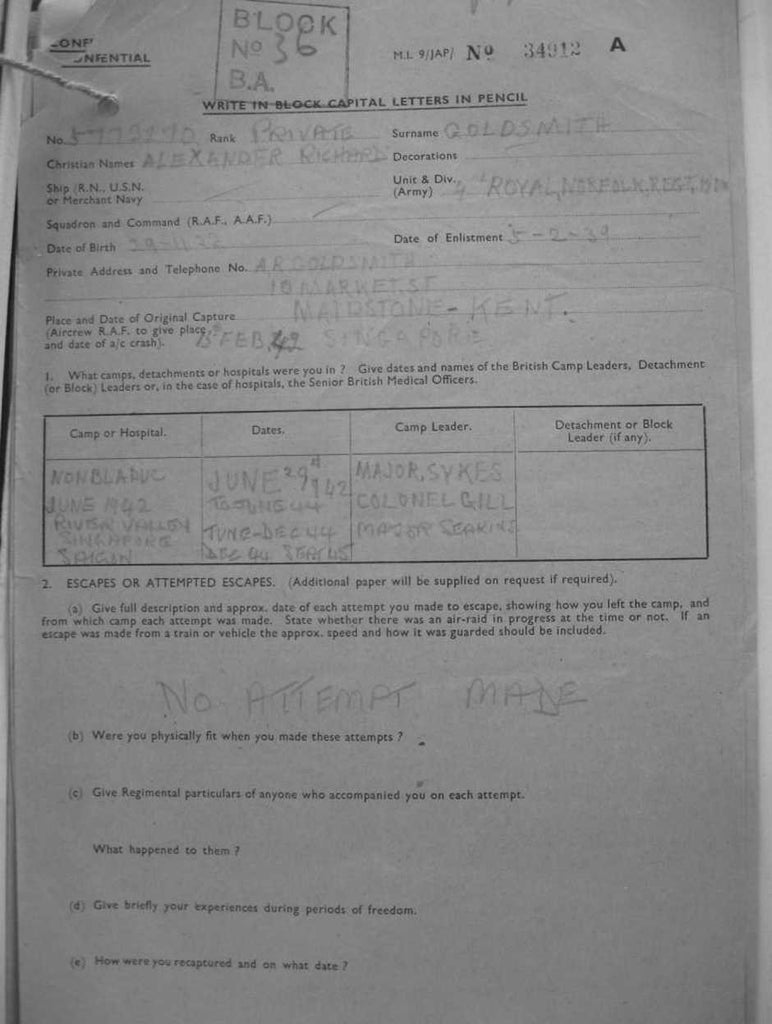 BLOCK
No 36
B.A.
CONF
NFENTIAL
M.I. 9/JAP/ No 34912 A
WRITE IN BLOCK CAPITAL LETTERS IN PENCIL
No. 5773270 Rank PRIVATE Surname GOLDSMITH
Christian Names ALEXANDER RICHARD Decorations
Ship (R.N., U.S.N. or Merchant Navy
Unit & Div. (Army) 4th ROYAL, NORFOLK, REGT,
Squadron and Command (R.A.F., A.A.F.)
Date of Birth 29-11-22 Date of Enlistment 5-2-39
Private Address and Telephone No. A R GOLDSMITH
10 MARKET. ST
MAIDSTONE - KENT.
Place and Date of Original Capture
(Aircrew R.A.F. to give place, 15 FEB. 42 SINGAPORE
and date of a/c crash).
1. What camps, detachments or hospitals were you in ? Give dates and names of the British Camp Leaders, Detachment
(or Block) Leaders or, in the case of hospitals, the Senior British Medical Officers.
Camp or Hospital. Dates. Camp Leader. Detachment or Block
Leader (if any).
NONBLADUC JUNE 29th 1942 MAJOR, SYKES
JUNE 1942 TO JUNE 44 COLONEL GILL
RIVER VALLEY JUNE-DEC 44 MAJOR
SINGAPORE
SAIGON DEC 44
2. ESCAPES OR ATTEMPTED ESCAPES. (Additional paper will be supplied on request if required).
(a) Give full description and approx. date of each attempt you made to escape, showing how you left the camp, and
from which camp each attempt was made. State whether there was an air-raid in progress at the time or not. If an
escape was made from a train or vehicle the approx. speed and how it was guarded should be included.
NO ATTEMPT MADE
(b) Were you physically fit when you made these attempts ?
(c) Give Regimental particulars of anyone who accompanied you on each attempt.
What happened to them ?
(d) Give briefly your experiences during periods of freedom.
(e) How were you recaptured and on what date ?